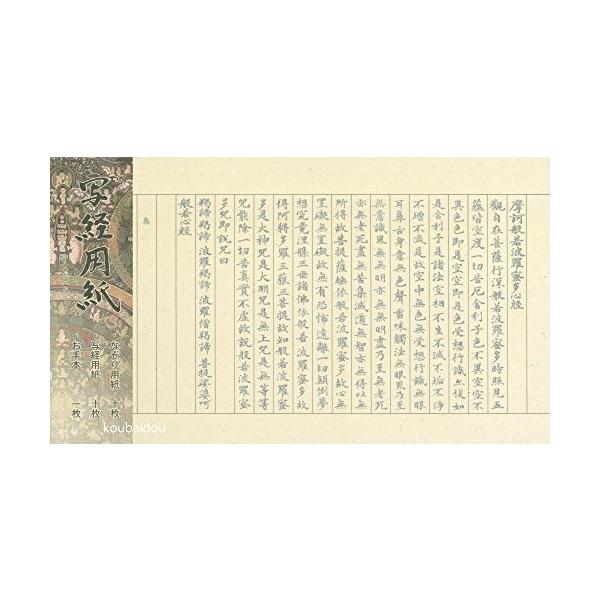 摩訶般若波羅蜜多心経
觀自在菩薩行深般若波羅蜜多時照見五
蘊皆空度一切苦厄舎利子色不異空空不
異色色即是空空即是色受想行識亦復如
是舎利子是諸法空相不生不滅不垢不浄
不増不減是故空中無色無受想行識無眼
耳鼻舌身意無色聲香味觸法無眼界乃至
無意識界無無明亦無無明盡乃至無老死
亦無老死盡無苦集滅道無智亦無得以無
所得故菩提薩埵依般若波羅蜜多故心無
罣礙無罣礙故無有恐怖遠離一切顛倒夢
想究竟涅槃三世諸佛依般若波羅蜜多故
得阿耨多羅三藐三菩提故知般若波羅蜜
多是大神咒是大明咒是無上咒是無等等
咒能除一切苦真實不虚故説般若波羅蜜
多咒即説咒曰
羯諦羯諦 波羅羯諦 波羅僧羯諦 菩提娑婆呵
般若心経
為
写経用紙
・なぞり用紙 十枚
・写経用紙 十枚
・お手本 一枚
koubaidou